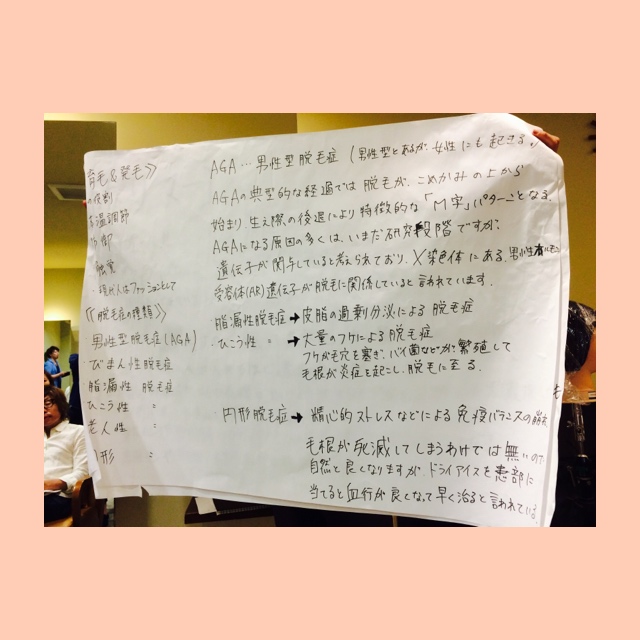 育毛&発毛》
の役割
る温調節
防御
触覚
・現代人はファッションとして
《脱毛症の種類》
・男性型脱毛症(AGA)
びまん性脱毛症
脂漏性 脱毛症
ひこう性 〃
老人性 〃
円形 〃
AGA…男性型脱毛症(男性型とあるが、女性にも起きる)
AGAの典型的な経過では 脱毛が、こめかみの上から
始まり、生え際の後退により特徴的な「M字」パターンとなる。
AGAになる原因の多くは、いまだ研究段階ですが、
遺伝子が関与していると考えられており、X染色体にある、男性ホルモン
受容体(AR)遺伝子が脱毛に関係していると言われています。
・脂漏性脱毛症→皮脂の過剰分泌による 脱毛症
・ひこう性 〃 →大量のフケによる 脱毛症
フケが毛穴を塞ぎ、バイ菌などが繁殖して
毛根が炎症を起こし、脱毛に至る.
・円形脱毛症→精心的ストレスなどによる 免疫バランスの崩れ
毛根が死滅してしまうわけでは無いので
自然と良くなりますが、ドライアイスを患部に
当てると血行が良くなって早く治ると言われている。